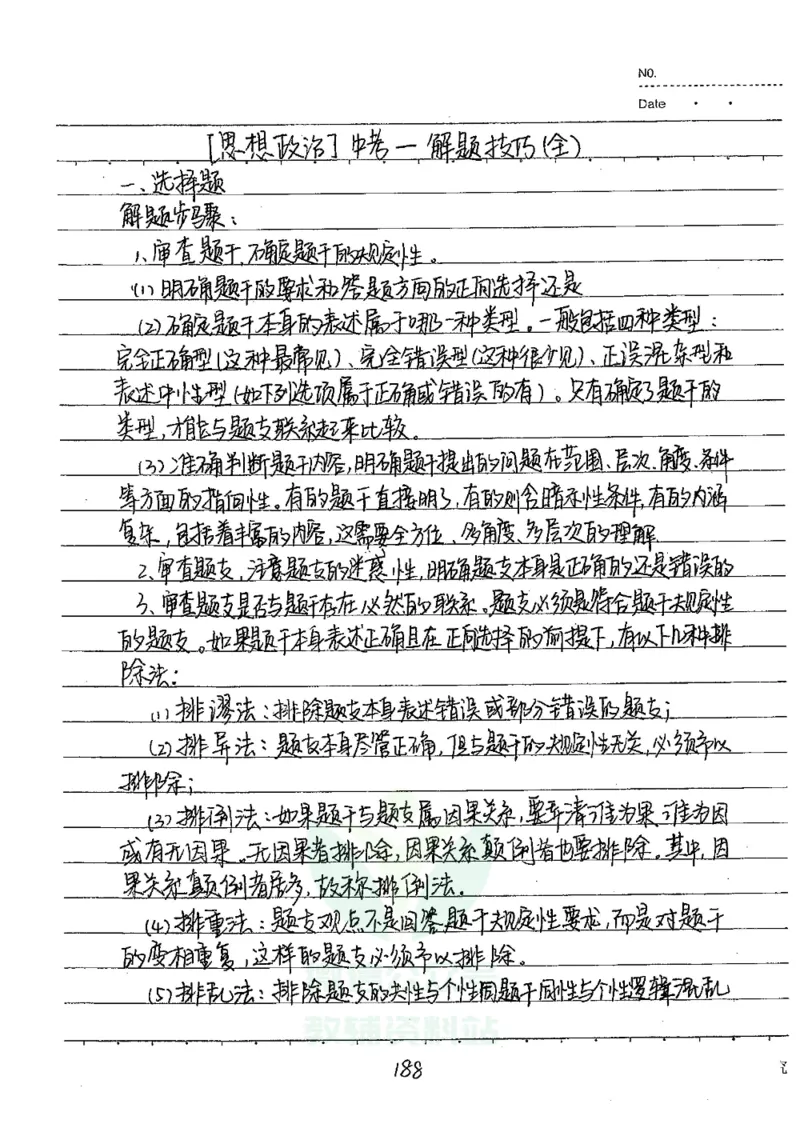 NO.
Date
[思想政治] 中考一解题技巧(全)
一、选择题
解题步骤：
1、审查题干,确定题干的规定性。
(1) 明确题干的要求和答题方面的正向选择还是
(2) 确定题干本身的表述属于哪一种类型。一般包括四种类型：
完全正确型(这种最常见)、完全错误型(这种很少见)、正误混杂型和
表述中性型(如下列选项属于正确或错误的有)。只有确定了题干的
类型,才能与题支联系起来比较。
(3) 准确判断题干内容,明确题干提出的问题在范围、层次、角度、条件
等方面的指向性。有的题干直接明了,有的则含暗示性条件,有的内涵
复杂,包括着丰富的内容,这需要全方位、多角度、多层次的理解
2、审查题支,注意题支的迷惑性,明确题支本身是正确的还是错误的
3、审查题支是否与题干存在必然的联系。题支必须是符合题干规定性
的题支。如果题干本身表述正确且在正向选择的前提下,有以下几种排
除法：
(1) 排谬法：排除题支本身表述错误或部分错误的题支;
(2) 排异法：题支本身尽管正确,但与题干的规定性无关,必须予以
排除;
(3) 排倒法：如果题干与题支属因果关系,要弄清谁为果、谁为因
或有无因果。无因果者排除,因果关系颠倒者也要排除。其中,因
果关系颠倒者居多,故称排倒法。
(4) 排重法：题支观点不是回答题干规定性要求,而是对题干
的变相重复,这样的题支必须予以排除。
(5) 排乱法：排除题支的共性与个性同题干同性与个性逻辑混乱
教辅资料站
188